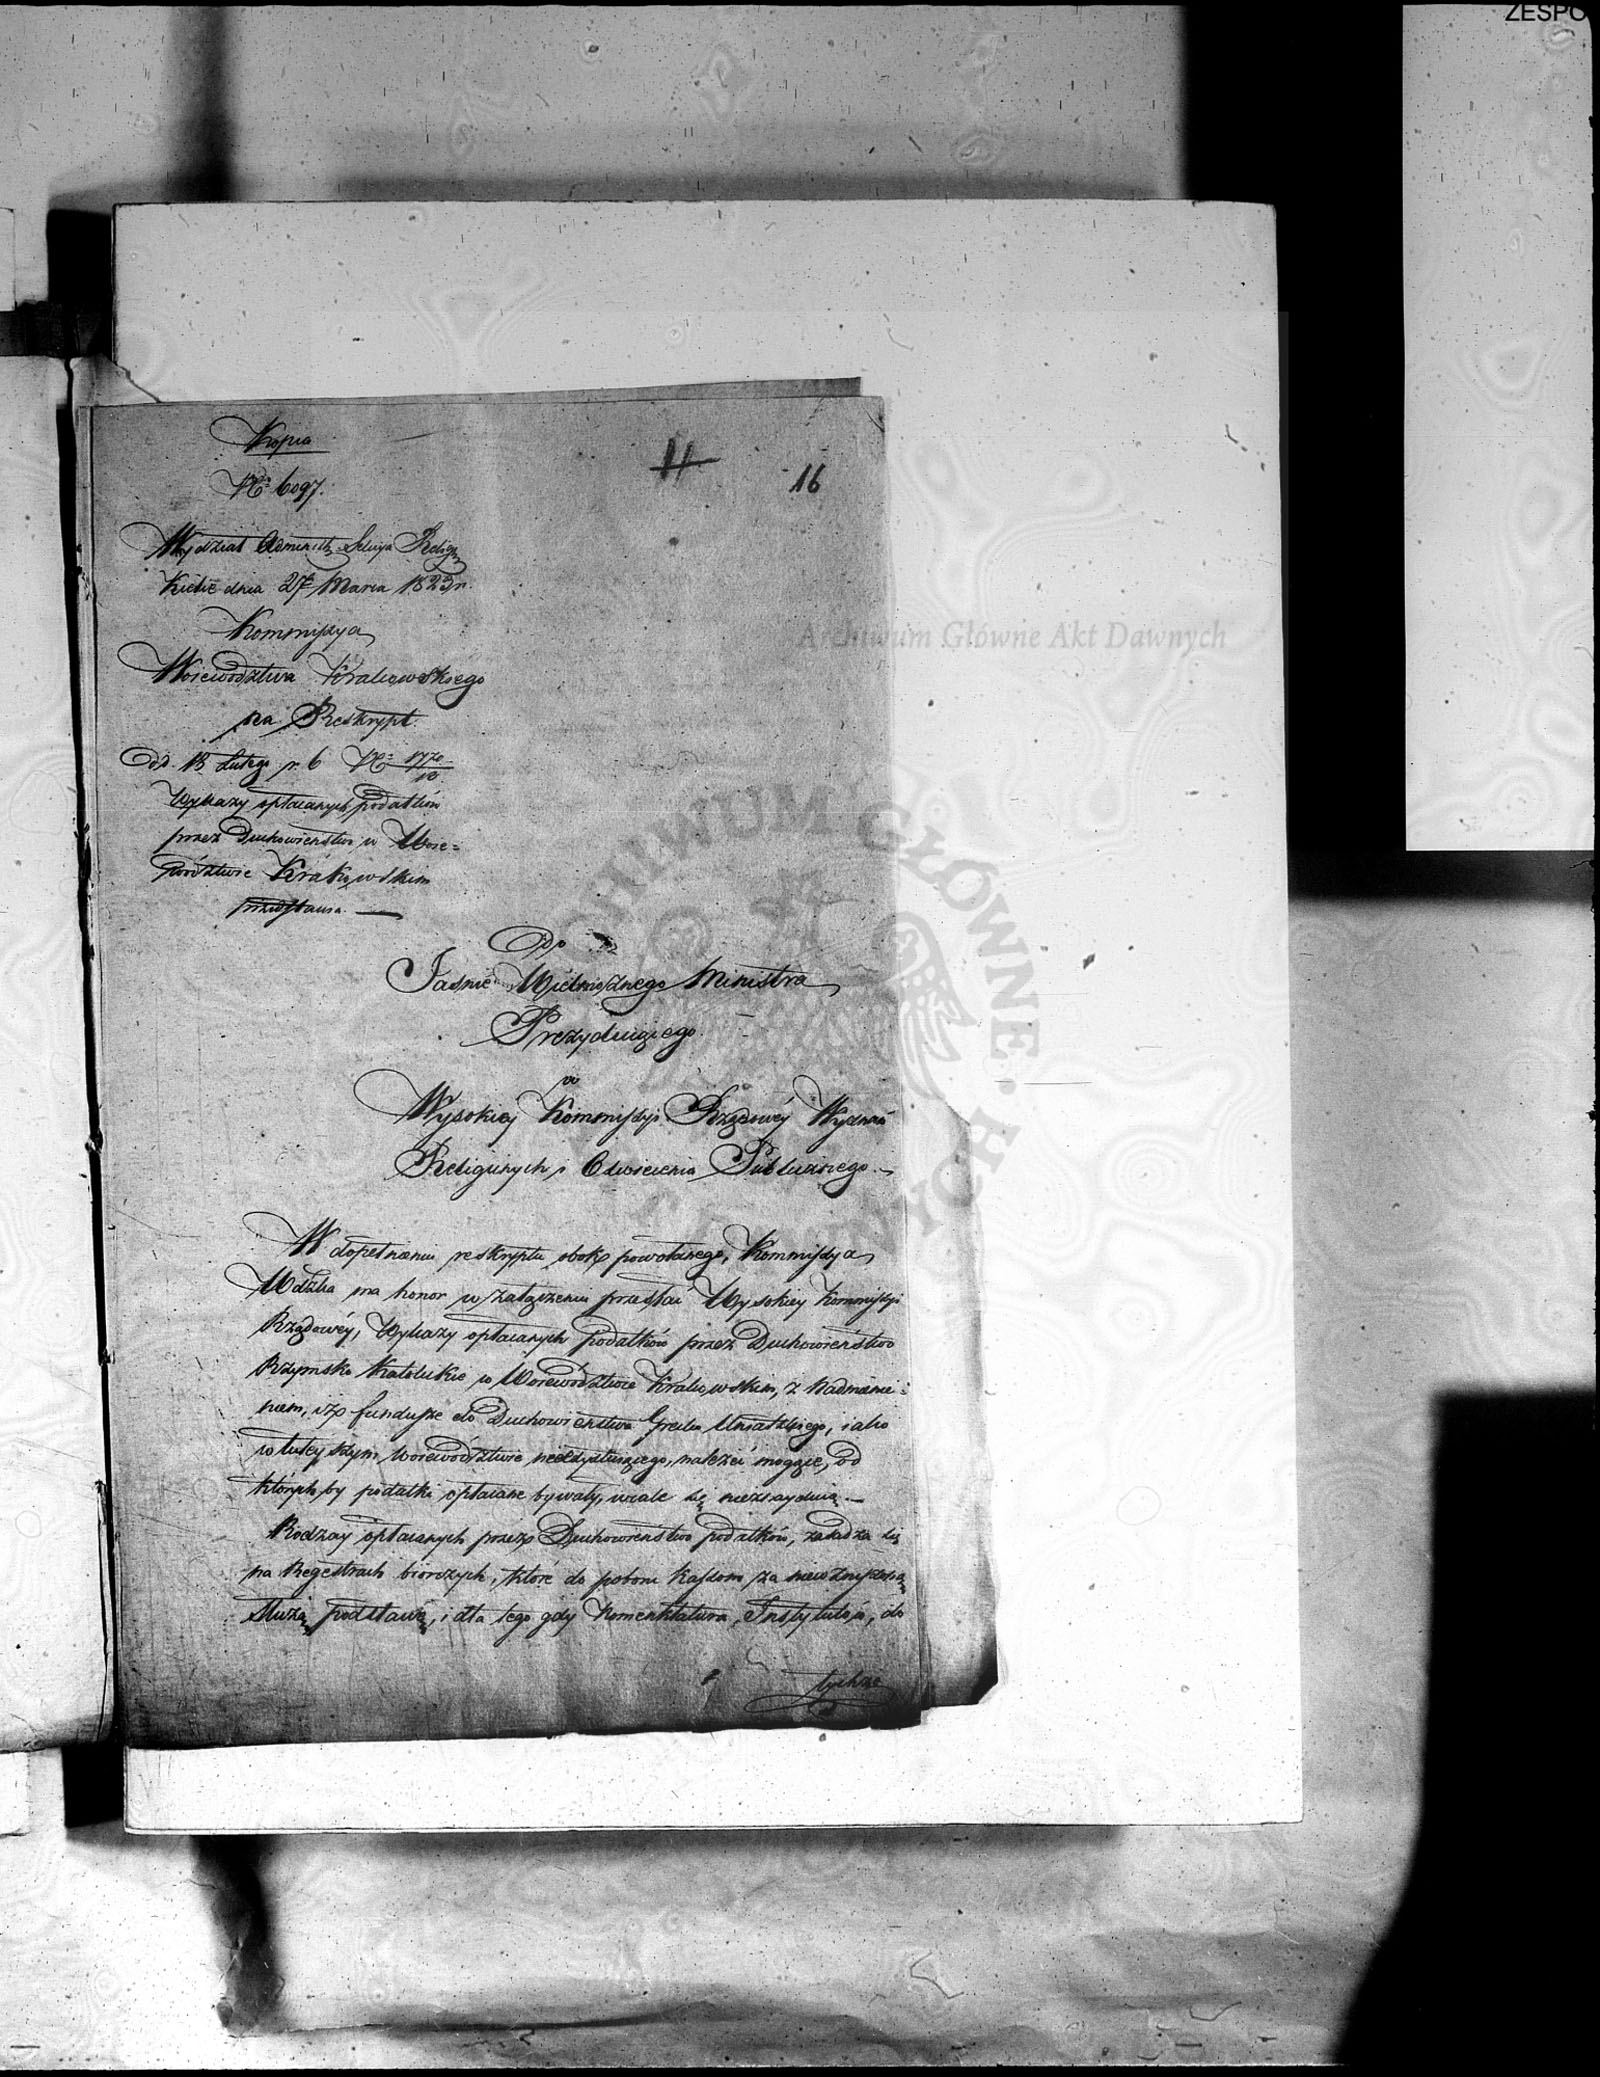 ZESPO
Kopia
11
16
No 6097.
Wydział Administr. Sekcya Religi.
Kielce dnia 27 Marca 1823 r.
Kommissya
Woiewództwa Krakowskiego
na Reskrypt
dd. 13 Lutego r. b No 1770/12
Wykazy opłacanych podatków
przez Duchowieństwo w Woie=
wództwie Krakowskim
przedstawia. —
Do
Jaśnie Wielmożnego Ministra
Prezyduiącego
w
Wysokiey Kommissyi Rządowéy Wyznań
Religiinych i Oświecenia Publicznego. —
W dopełnieniu reskryptu obok powołanego, Kommissya
Wdzka ma honor w załączeniu przesłać Wysokiey Kommissyi
Rządowéy, Wykazy opłacanych podatków przez Duchowieństwo
Rzymsko Katolickie w Woiewództwie Krakowskim, z nadmienie=
niem, iż fundusze do Duchowieństwa Greko Uniatskiego, iako
w tuteyszym Woiewództwie nieexystuiącego, należeć mogące, od
których by podatki opłacane bywały, wcale się nieznayduią. —
Rodzay opłacanych przez Duchowieństwo podatków, zasadza się
na Regestrach biorczych, które do poboru Kassom za
służą podstawę, i dla tego gdy Nomenklatura, Instytutów, do
tychże
Archiwum Główne Akt Dawnych
ARCHIWUM GŁÓWNE AKT DAWNYCH